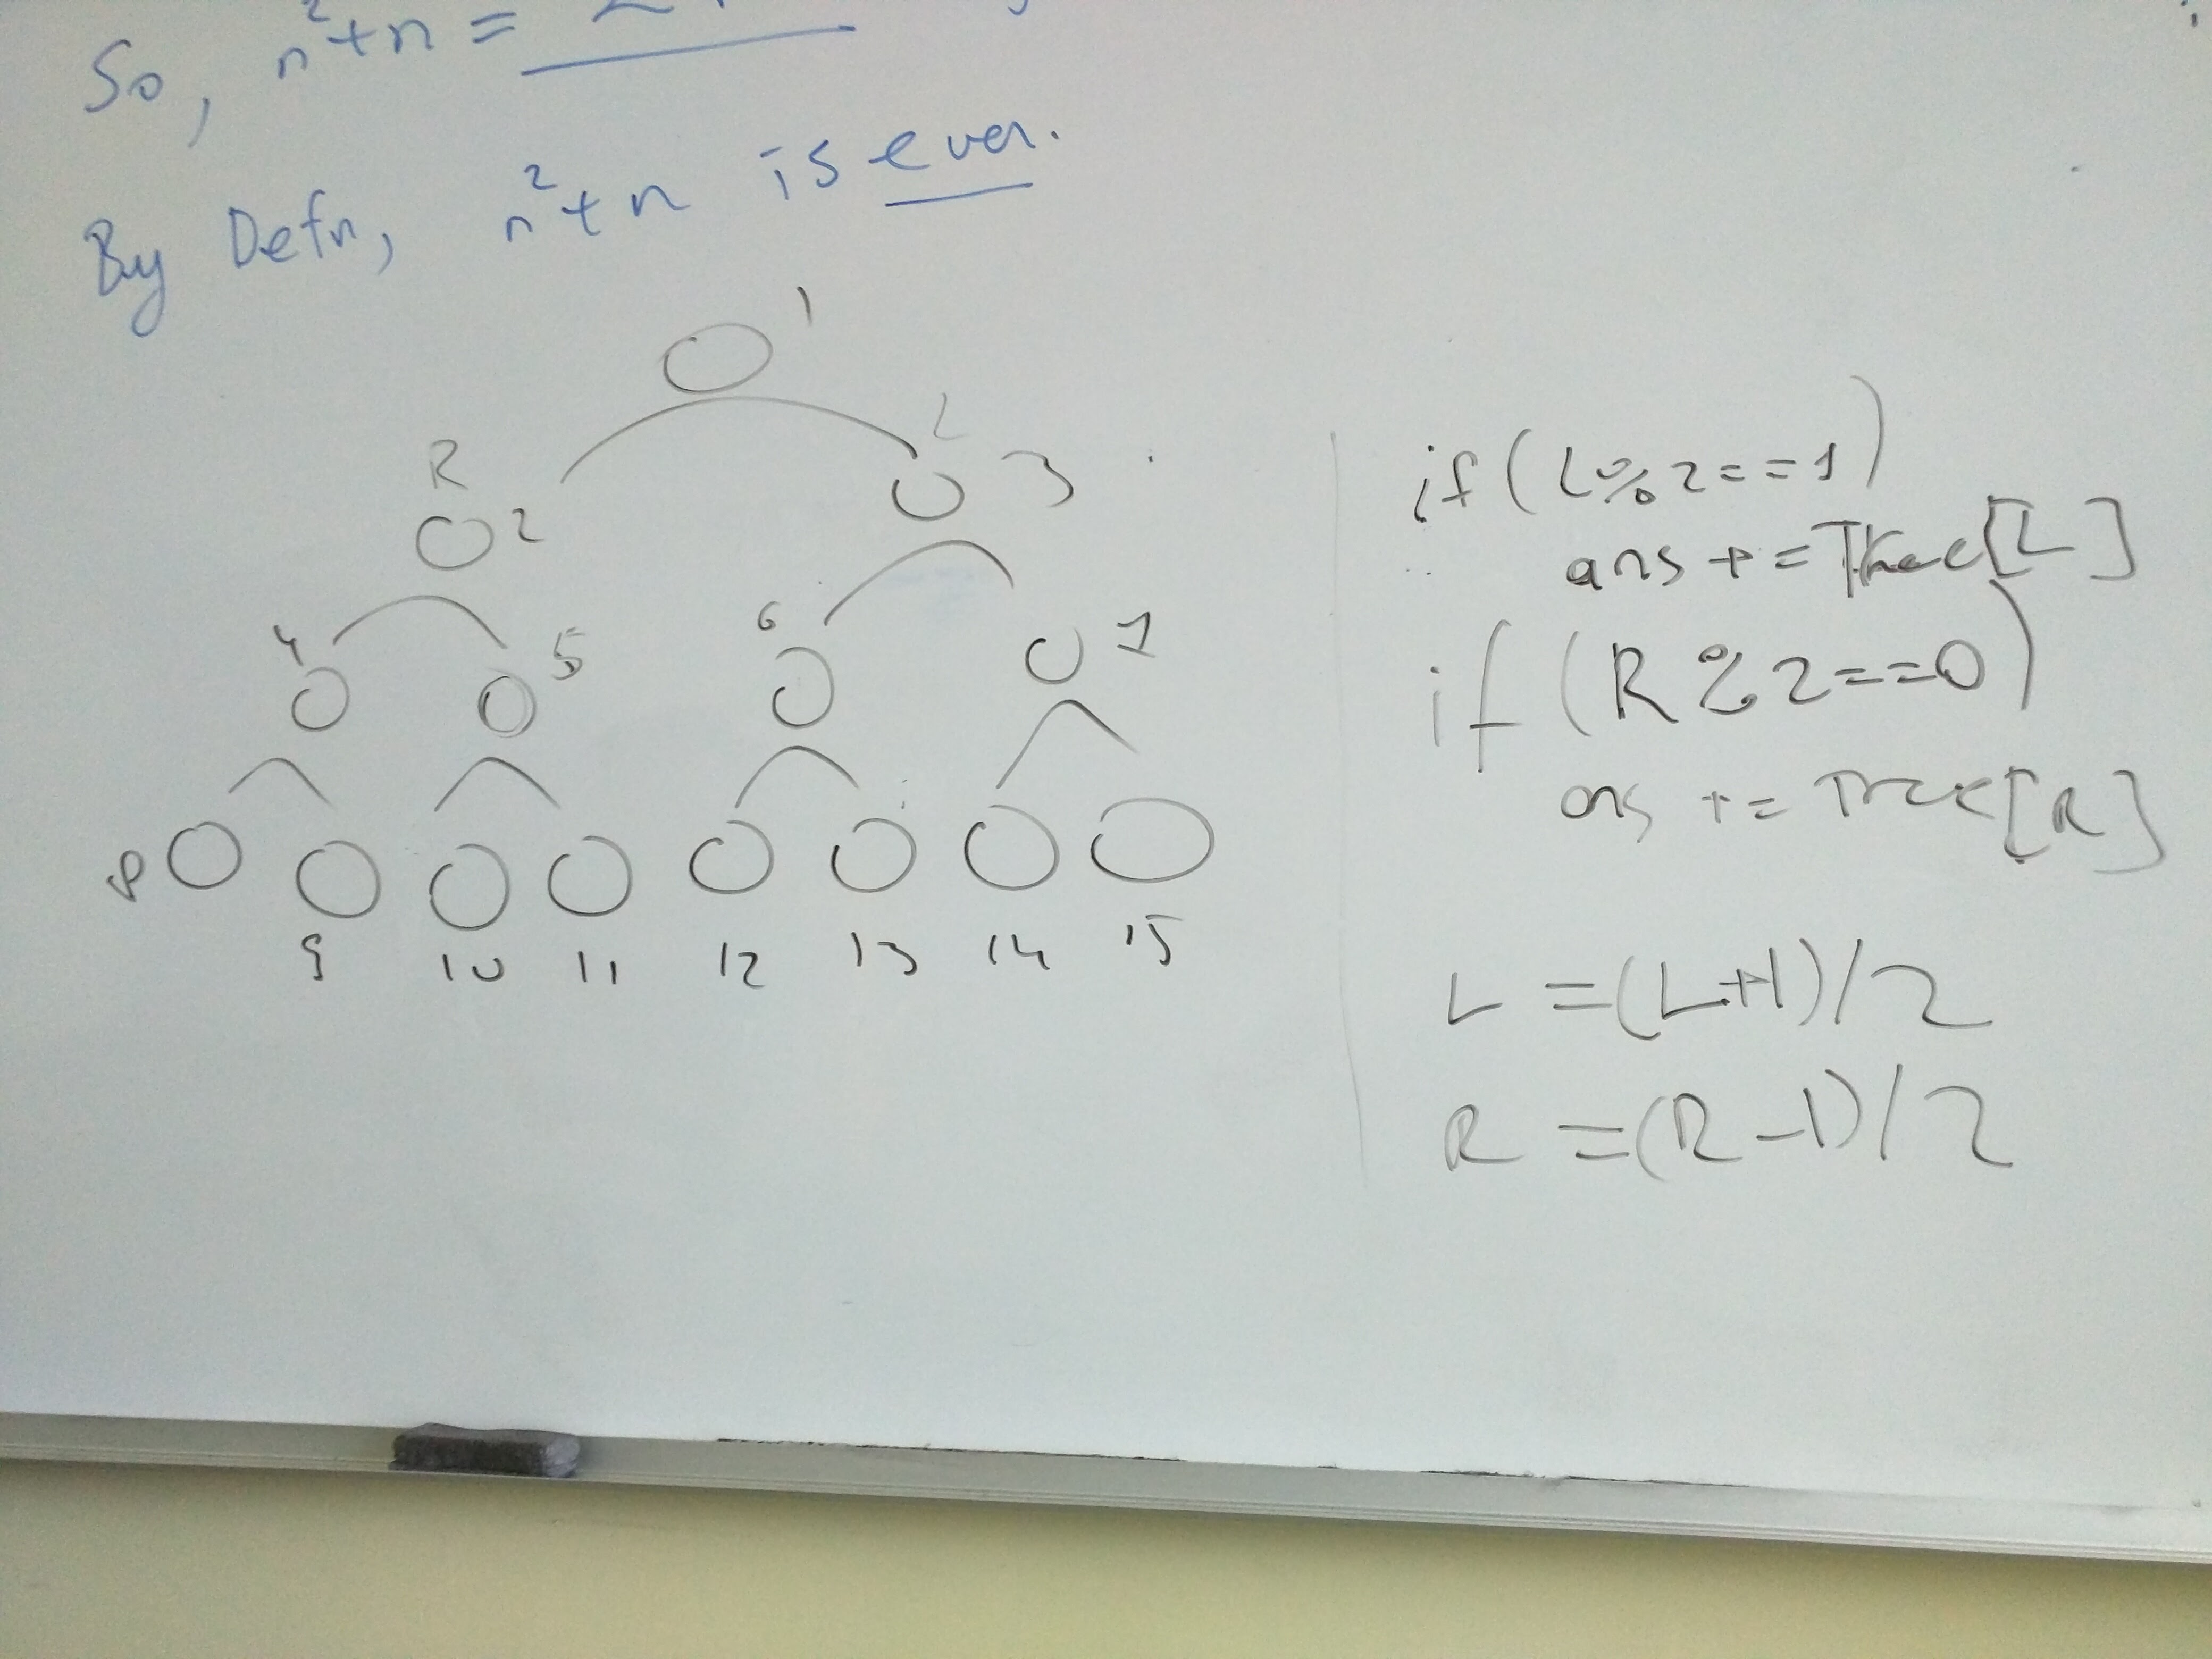 So, n²+n =
By Defn, n²+n is even.
1
R L
2 3
4 5 6 7
8
9 10 11 12 13 14 15
if (L%2==1)
ans += Tree[L]
if (R%2==0)
ans += Tree[R]
L = (L+1)/2
R = (R-1)/2